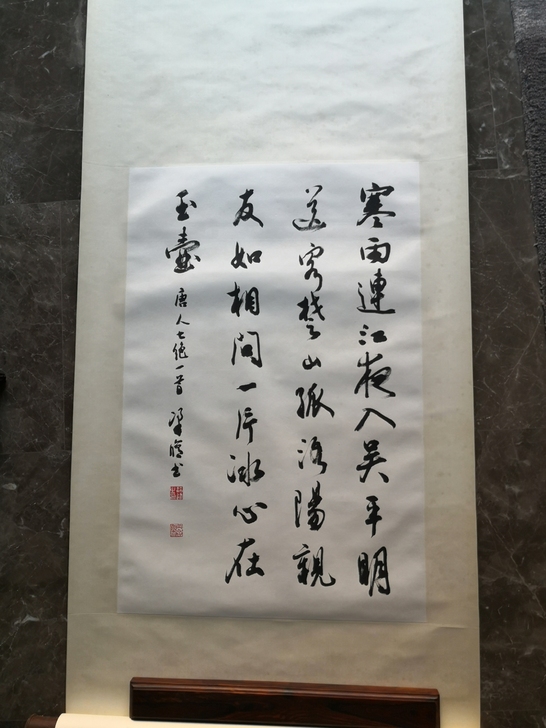 寒雨連江夜入吴平明
送客楚山孤洛陽親
友如相問一片冰心在
玉壺
唐人七絕一首 梁 書